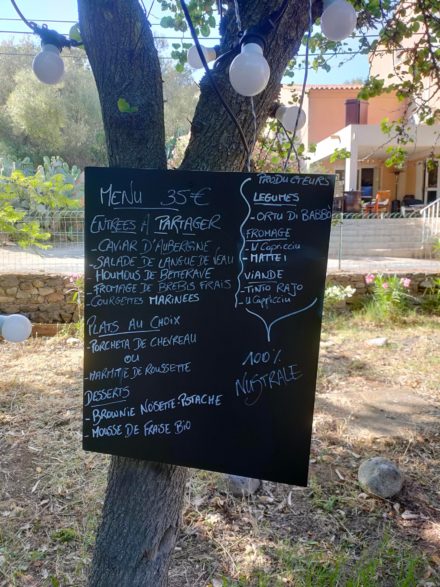 MENU 35€
ENTRÉES À PARTAGER
- CAVIAR D'AUBERGINE
- SALADE DE LANGUE DE VEAU
- HOUMOUS DE BETTERAVE
- FROMAGE DE BREBIS FRAIS
- COURGETTES MARINÉES
PLATS AU CHOIX
- PORCHETA DE CHEVREAU
OU
- MARMITE DE ROUSSETTE
DESSERTS
- BROWNIE NOISETTE-PISTACHE
- MOUSSE DE FRAISE BIO
PRODUCTEURS
LEGUMES
- ORTU DI BABBO
FROMAGE
- U CAPRICCIU
- MATTEI
VIANDE
- TINTIO RAJO
- U CAPRICCIU
100%
NUSTRALE